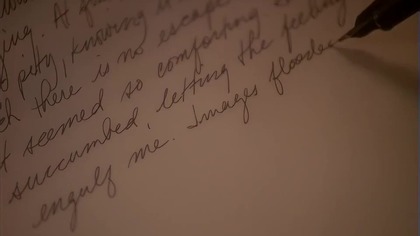 ing. A
pity, knowing i
ch there is no escape
t seemed so comforting
succumbed, letting the feeling
engulf me. Images flooded